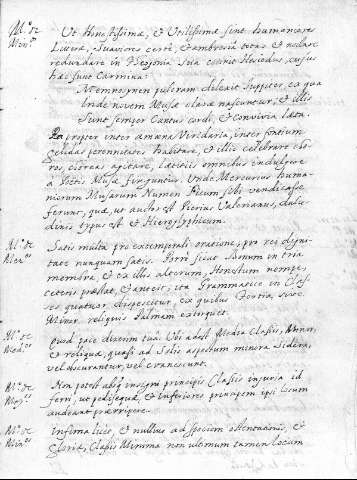 M.o de
Min.os
Ut Honestissimæ, et Utilissimæ sunt humaniores
Literæ, Suaviores certè, et ambrosia
redundare in Theogonia sua cecinit Hesiodus, cujus
hæc sunt Carmina:
Memnosynen pulcram delexit Juppiter, ex qua
Unde novem Musæ claræ nascuntur; et illis
Sunt semper Cantus cordi, et Convivia læta.
propter inter amæna Viridaria, inter fontium
gelidas perennitates habitare, et illic celebrare cho-
ros, choreas agitare, lætitiis omnibus indulgere
a Poetis Musæ finguntur. Unde Mercurius huma-
niorum Musarum Numen Ficum sibi vendicasse
ferunt, quæ, ut auctor est Pierius Valerianus, dulce-
dinis typus est et Hieroglyphicum.
M.o de
Satis multa pro extemporali oratione, pro rei digni-
tate nunquam satis. Porrò sicut Bonum in tria
membra, et ex illis alterum, Honestum nempe,
ceteris præstat, et antecit; ita Grammatice in Clas-
ses quatuor dispescitur, ex quibus
Minor reliquis Palmam extorquet.
M.o de
Med.os
Quod pace dixerim tuâ. Ubi adest Media Classis, Minor,
et reliquæ, quasi ad Solis aspectum minora Sidera,
vel obscurantur, vel evanescunt.
M.o de
May.os
Non potest absq insigni principis Classis injuria id
ferri, ut pedisequæ, et inferiores principem ipsi locum
audeant præripere.
M.o de
Min.os
Infima licet, et nullius ad speciem ostentationis, et
Gloriæ, Classis Minima non ultimum tamen locum